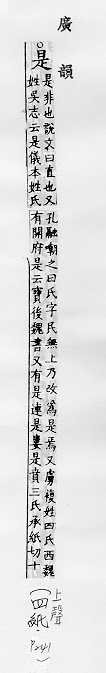 廣韻
。是
是非也說文曰直也又
姓吳志云是儀本姓氏
孔融嘲之曰氏字民無上乃改爲是焉又虜複姓四氏西魏
有開府是云寶後魏書又有是連是婁是賁三氏承紙切十
上聲
(四紙. P241)